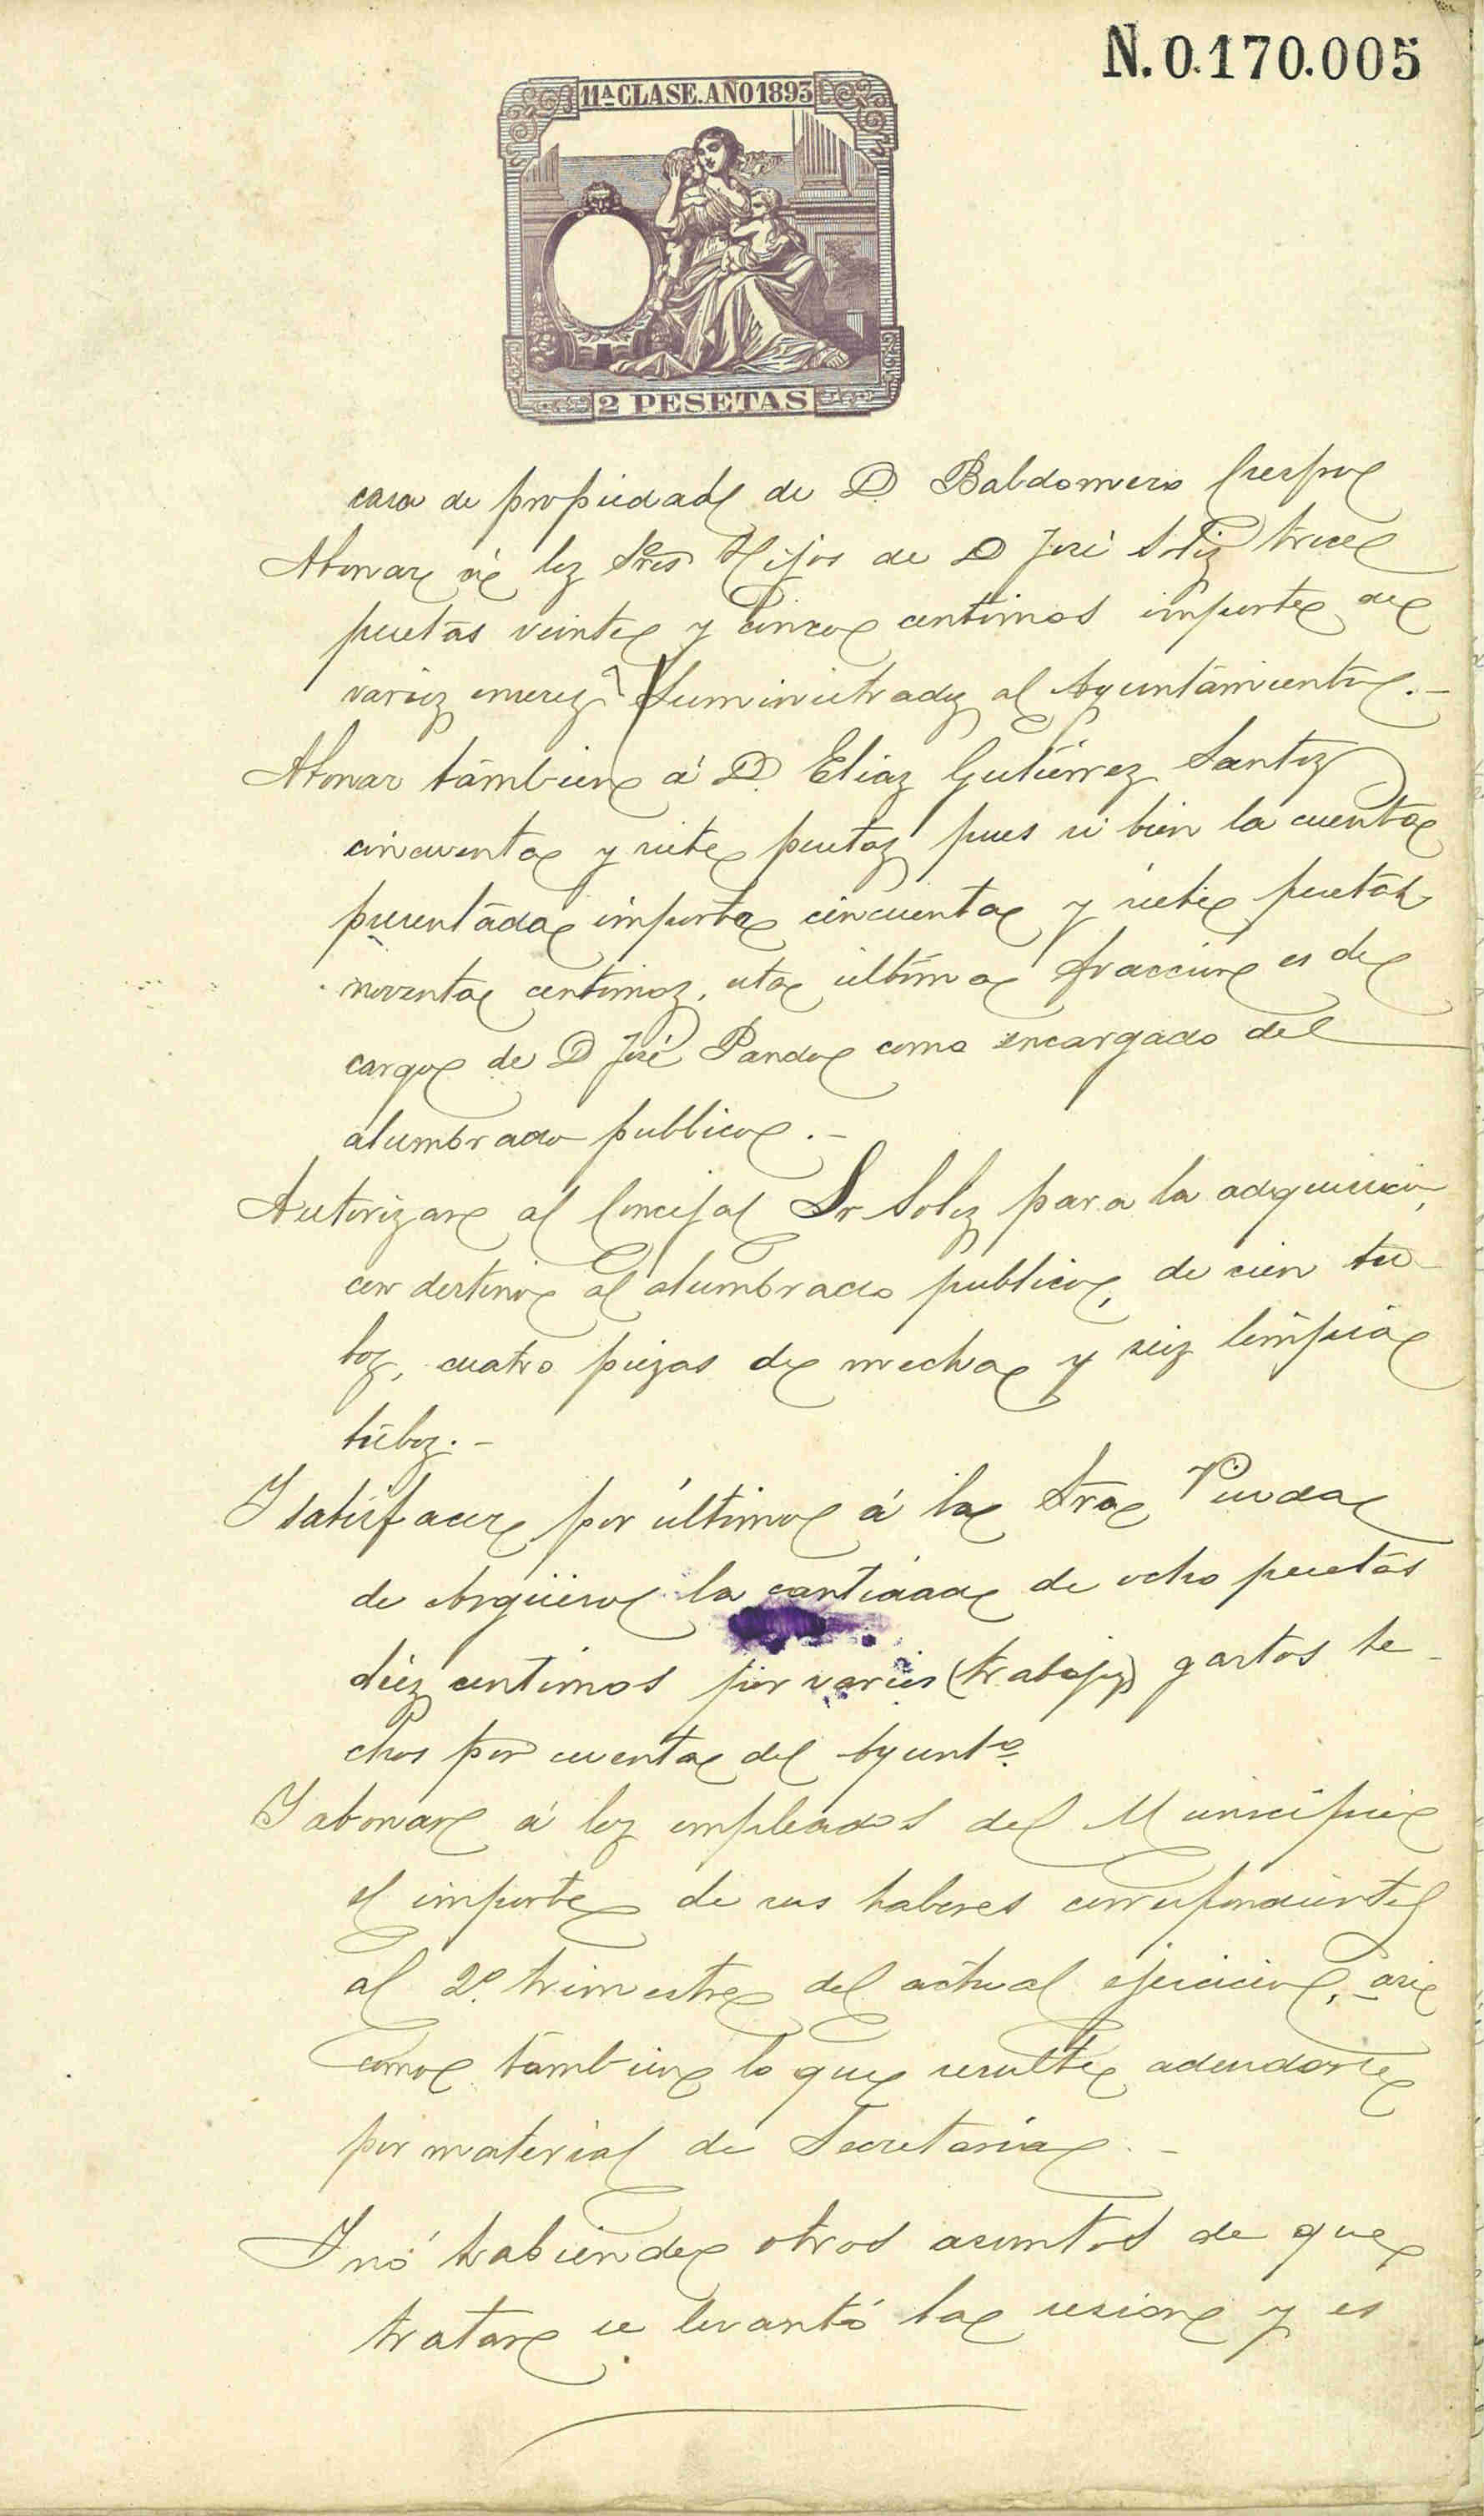 N. 0.170.005
11ª CLASE. AÑO 1893
2 PESETAS
casa de propiedad de D. Baldomero Crespo
Abonar á los Sres Hijos de D José Soliz trece
pesetas veinte y cinco centimos importe de
varios enseres suministrados al Ayuntamiento.-
Abonar tambien á D. Elias Gutiérrez Santos
cincuenta y siete pesetas pues si bien la cuenta
presentada importa cincuenta y siete pesetas
noventa centimos, esta última fracción es de
cargo de D José Pando como encargado del
alumbrado publico.-
Autorizar al Concejal Sr Soliz para la adquisición,
con destino al alumbrado publico, de cien tu-
bos, cuatro piezas de mecha y seis limpia
tubos.-
Y satisfacer por último á la Sra Viuda
de Argüeso la cantidad de ocho pesetas
diez centimos por varios (trabajos) gastos he-
chos por cuenta del Ayuntº.
Y abonar á los empleados del Municipio
el importe de sus haberes correspondientes
al 2º. trimestre del actual ejercicio, asi
como tambien lo que resulte adeudarse
por material de Secretaria.-
Y nó habiendo otros asuntos de que
tratar se levantó la sesion y es